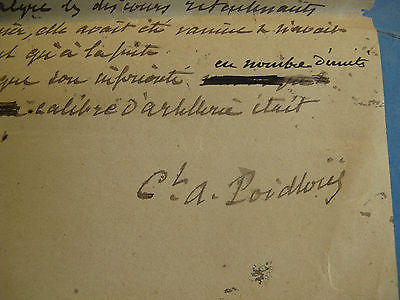 les discours retentissants
elle avait été
qu'à la suite
que son infériorité en nombre d'unités
calibre d'artillerie était
Ct. A. Poidloüe